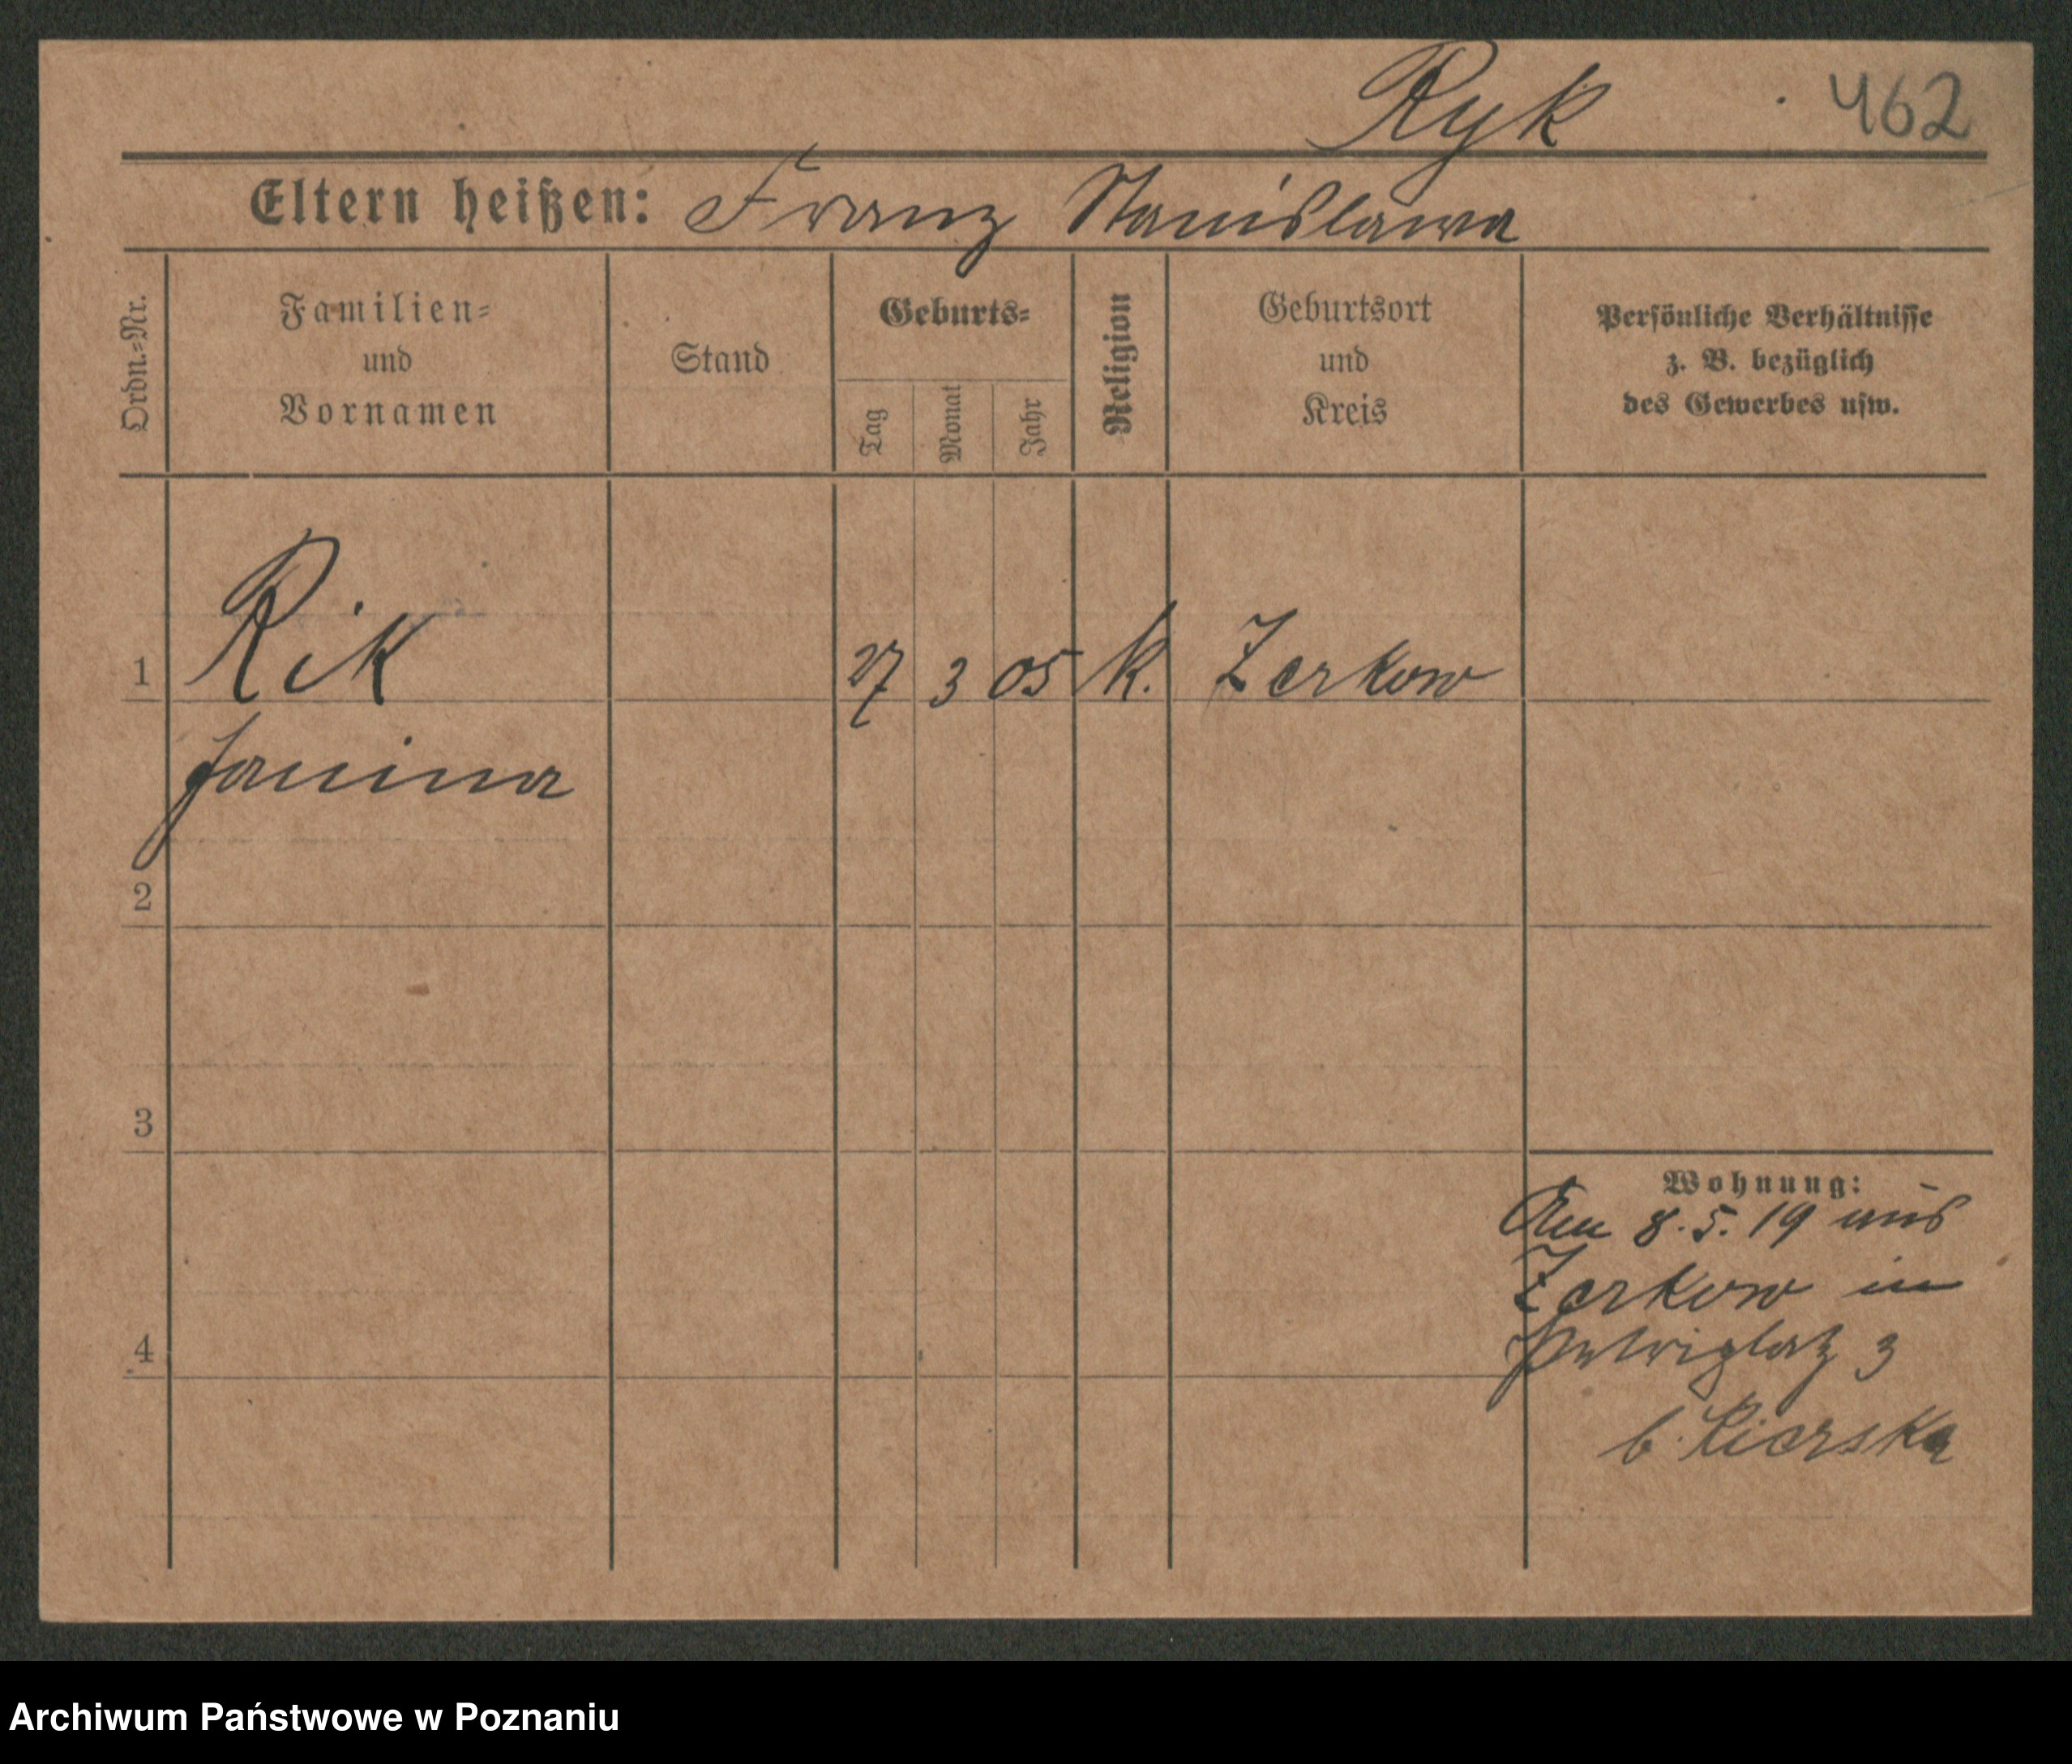 Ryk 462
Eltern heißen: Franz Stanislawa
Ordn.=Nr.
Familien=
und
Vornamen
Stand
Geburts=
Tag
Monat
Jahr
Religion
Geburtsort
und
Kreis
Persönliche Verhältnisse
z. B. bezüglich
des Gewerbes usw.
1 Rik 27 3 05 k. Zerkow
Janina
2
3
4
Wohnung:
Am 8.5.19 aus
Zerkow in
Petriplatz 3
b. Kierska
Archiwum Państwowe w Poznaniu